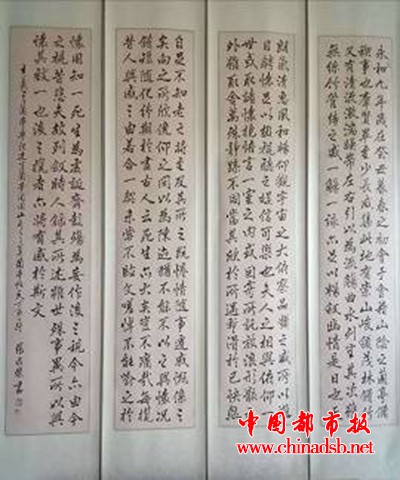 永和九年歲在癸丑暮春之初會于會稽山陰之蘭亭脩
稧事也群賢畢至少長咸集此地有崇山峻領茂林脩竹
又有清流激湍暎帶左右引以為流觴曲水列坐其次雖
無絲竹管絃之盛一觴一詠亦足以暢敘幽情是日也天
朗氣清惠風和暢仰觀宇宙之大俯察品類之盛所以遊
目騁懷足以極視聽之娛信可樂也夫人之相與俯仰一
世或取諸懷抱悟言一室之內或因寄所託放浪形骸之
外雖趣舍萬殊靜躁不同當其欣於所遇暫得於己快然
自足不知老之將至及其所之既惓情隨事遷感慨係之
矣向之所欣俛仰之間以為陳迹猶不能不以之興懷況
脩短隨化終期於盡古人云死生亦大矣豈不痛哉每攬
昔人興感之由若合一契未嘗不臨文嗟悼不能喻之於
懷固知一死生為虛誕齊彭殤為妄作後之視今亦由今
之視昔悲夫故列敘時人錄其所述雖世殊事異所以興
懷其致一也後之攬者亦將有感於斯文
中国都市报
www.chinadsb.net